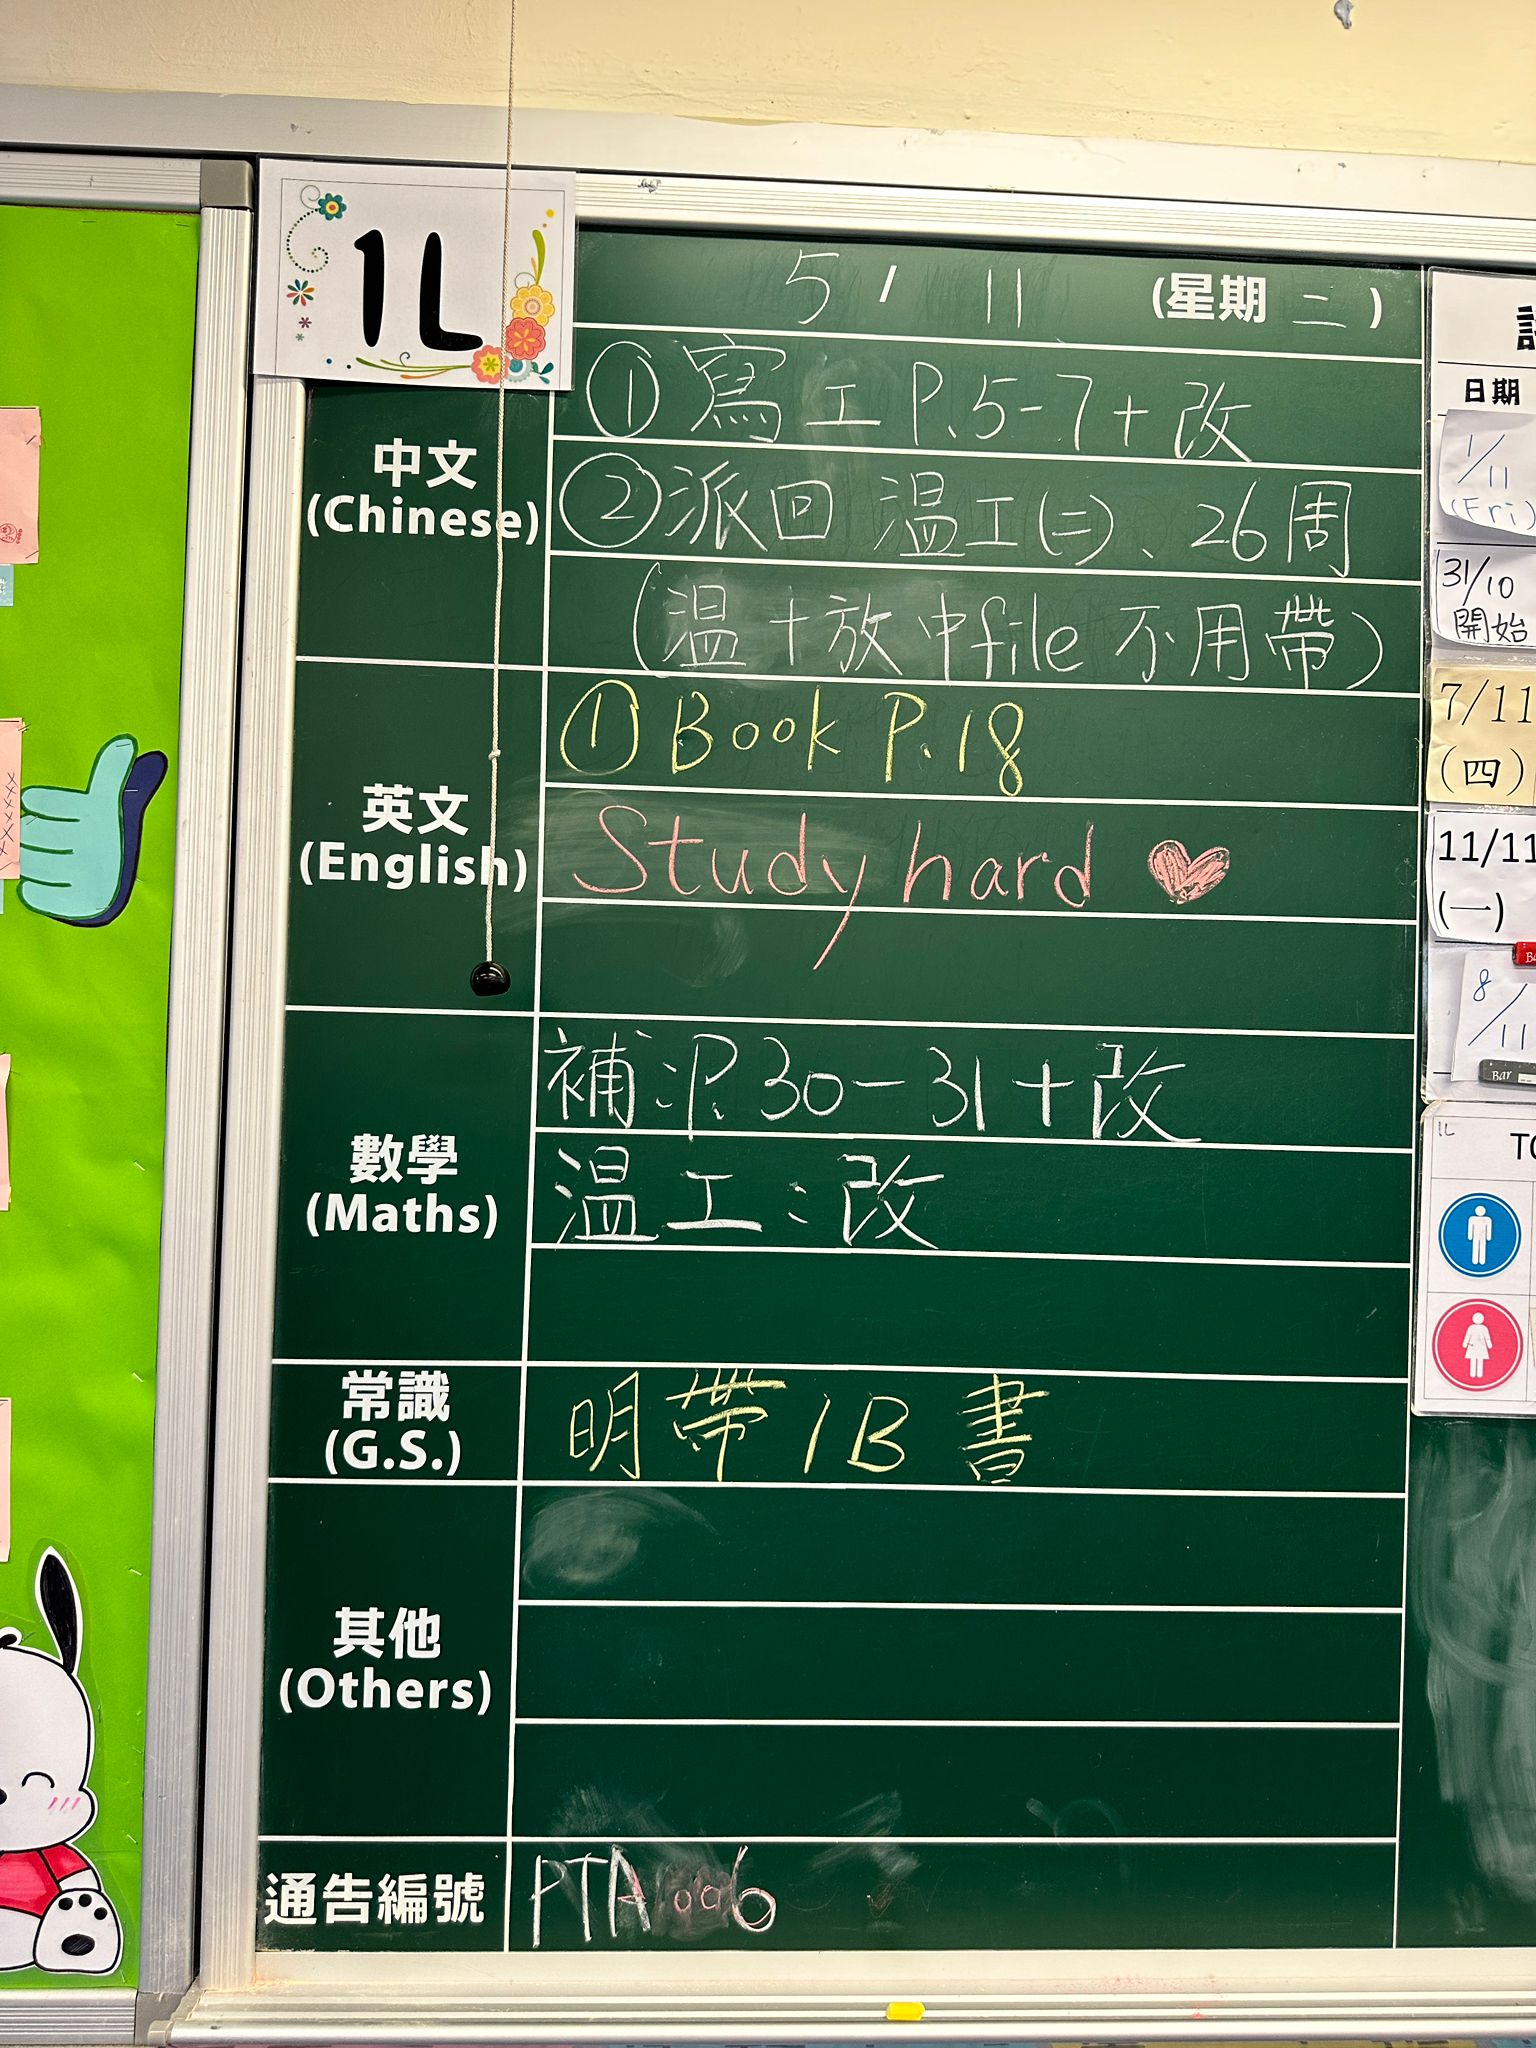 1L
5 / 11 (星期 二 )
中文
(Chinese)
① 寫工 P.5-7 + 改
② 派回 溫工(二)、26周
(溫 + 放中file 不用帶)
英文
(English)
① Book P.18
Study hard
數學
(Maths)
補:P.30-31 + 改
溫工:改
常識
(G.S.)
明帶 1B 書
其他
(Others)
通告編號
PTA 006
日期
1/11
(Fri)
31/10
開始
7/11
(四)
11/11
(一)
8/11
Bar
1L